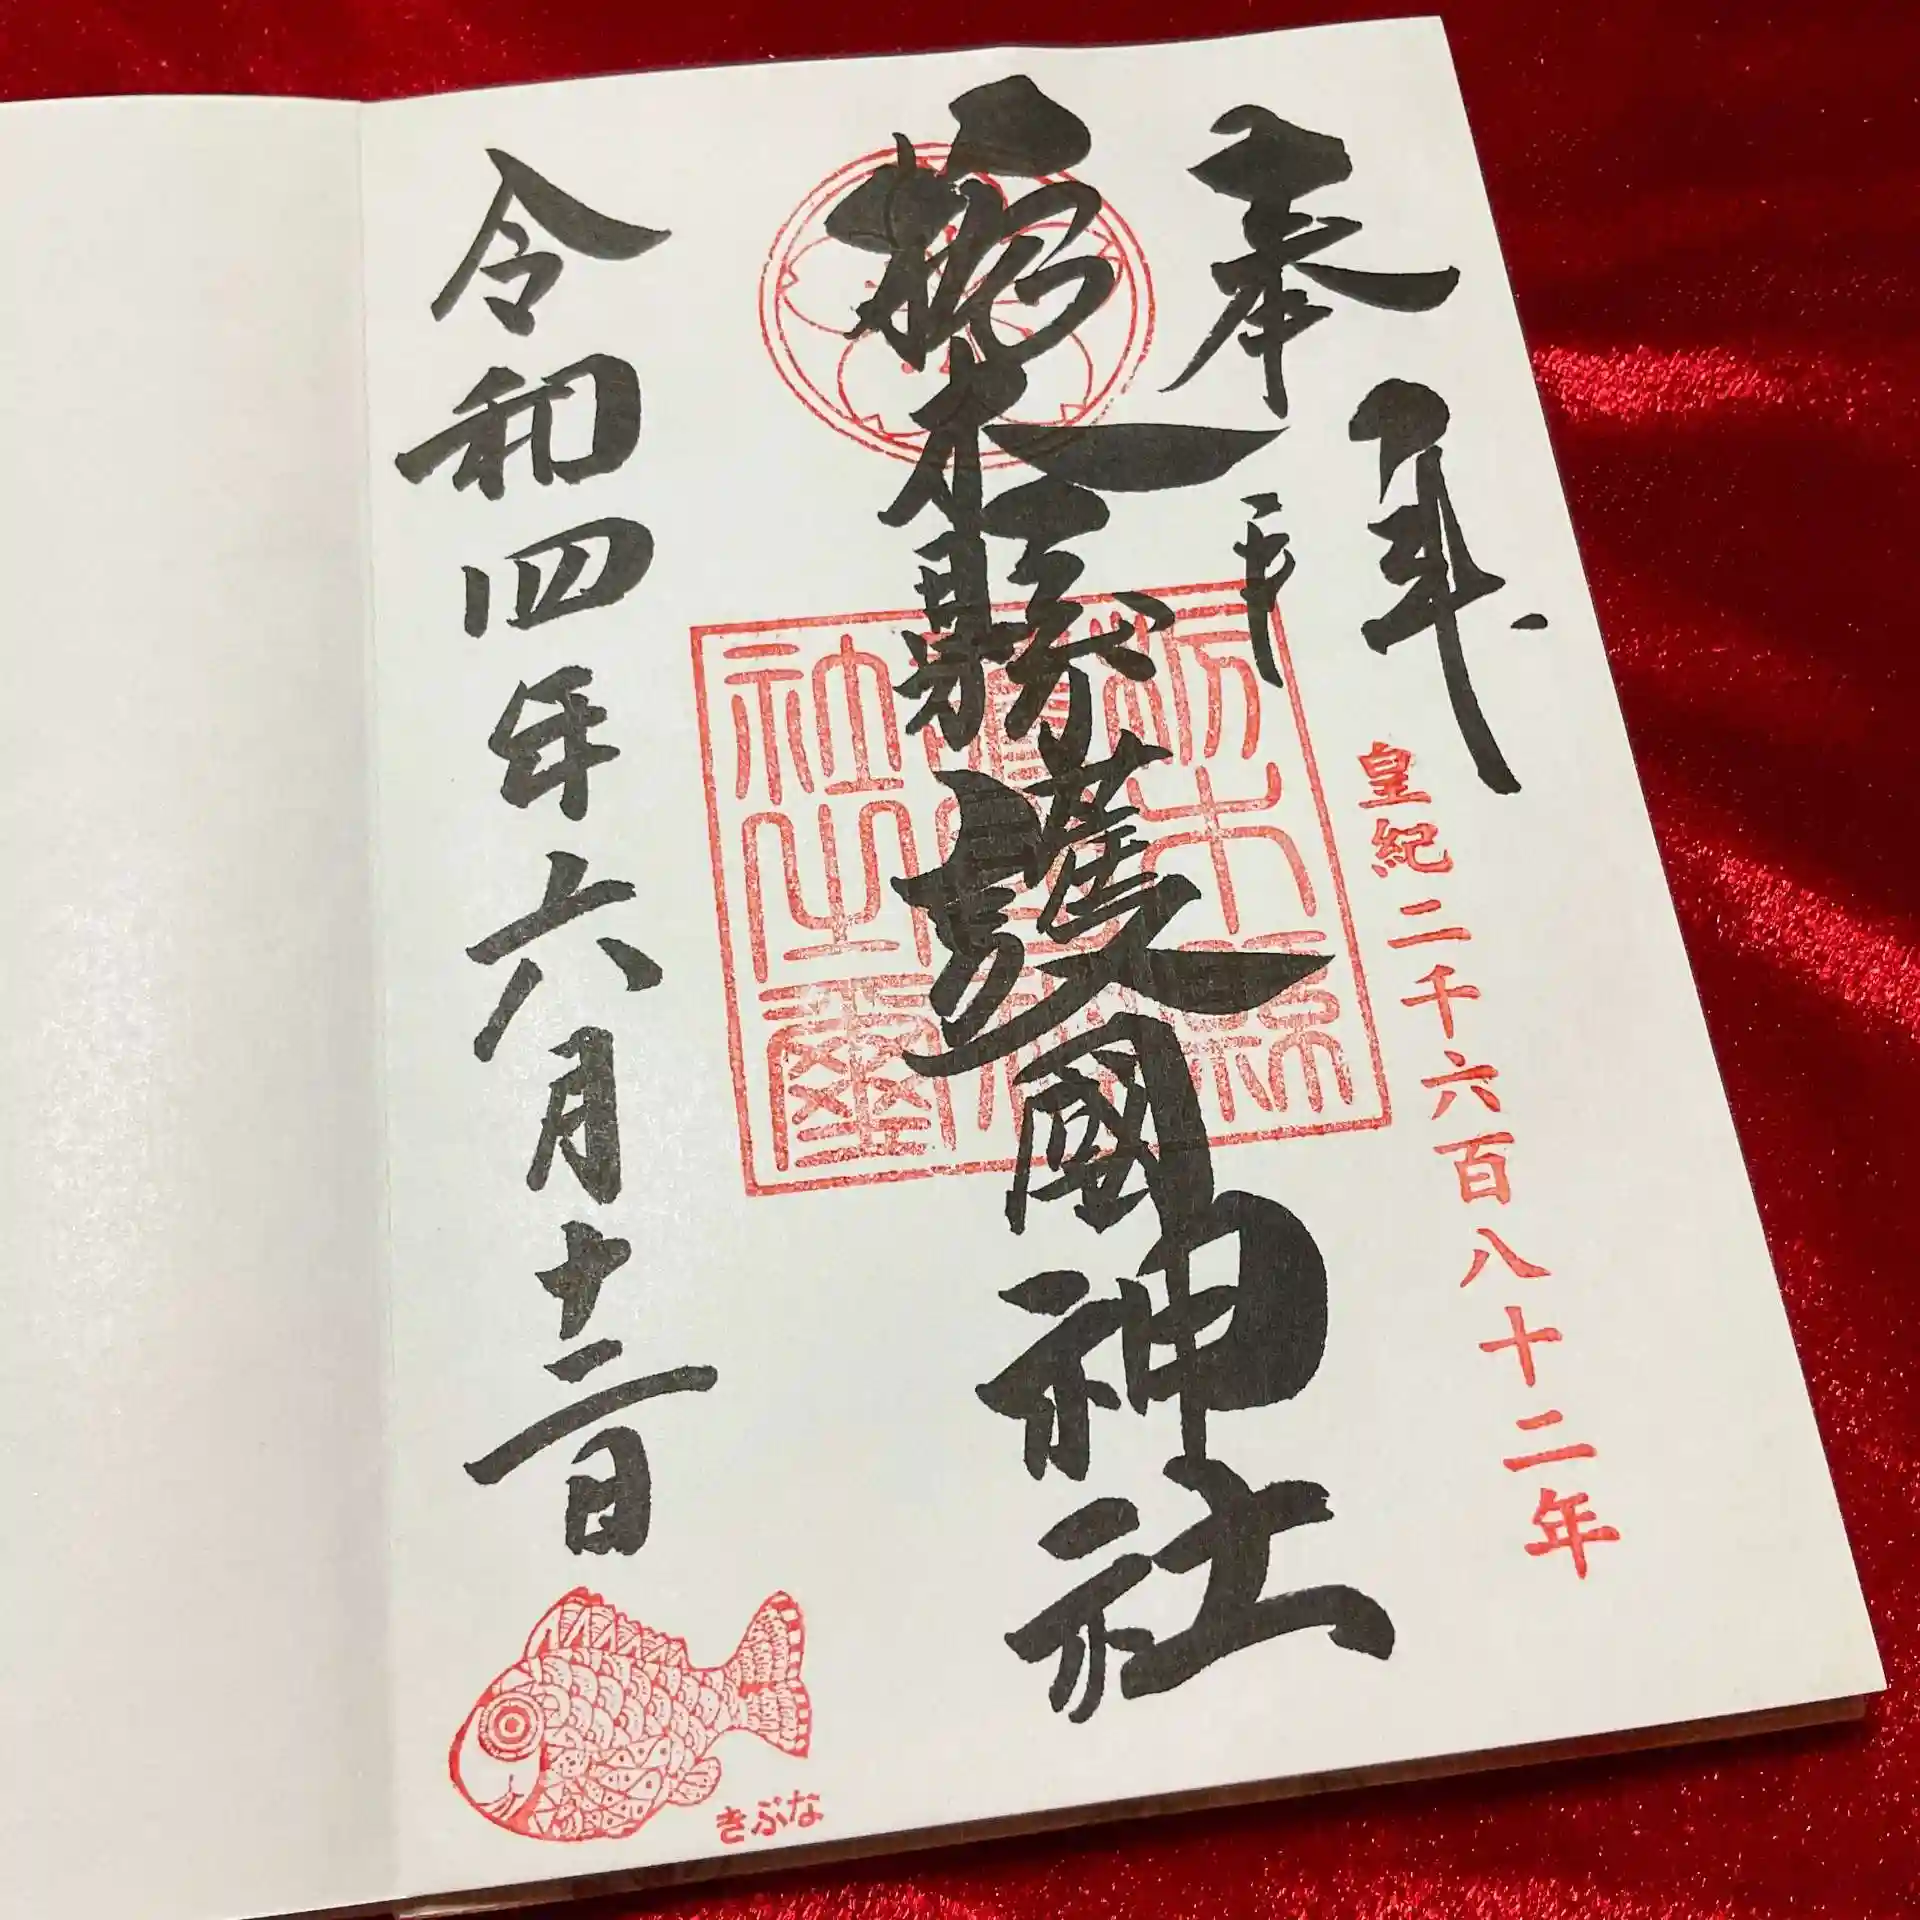 奉拝
皇紀二千六百八十二年
栃木縣護國神社
栃木縣
社之璽
令和四年六月十二日
きぶな